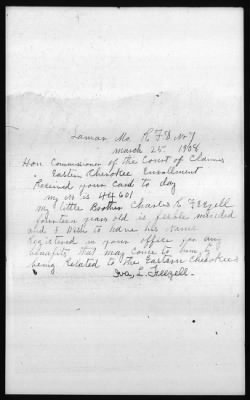 Lamar Mo R F D No 7
March 25 1908
Hon Commissioner of the Court of Claims
Eastern Cherokee Enrollment
Received your Card to day
my No is 44601
my little Brother Charles K Feezell
fourteen years old is feeble minded
and I Wish to have his Name
Registered in your office for any
benefits that may come to him by
being Related to the Eastern Cherokees
Iva L. Feezell.